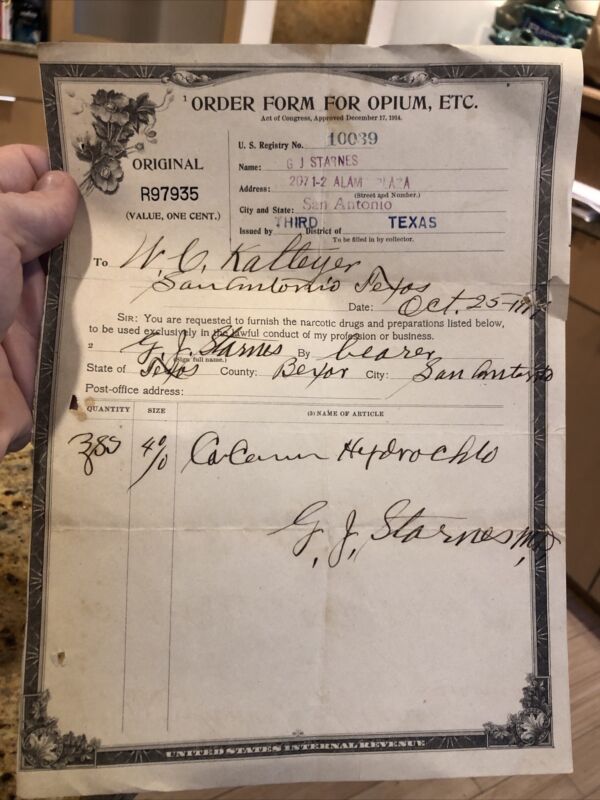 1 ORDER FORM FOR OPIUM, ETC.
Act of Congress, Approved December 17, 1914.
ORIGINAL
R97935
(VALUE, ONE CENT.)
U. S. Registry No. 10039
Name: G J STARNES
Address: 207 1-2 ALAM PLAZA
(Street and Number.)
City and State: San Antonio
THIRD TEXAS
Issued by District of
To be filled in by collector.
To W. C. Kalteyer
San Antonio Texas
Date: Oct. 25-
SIR: You are requested to furnish the narcotic drugs and preparations listed below,
to be used exclusively in the lawful conduct of my profession or business.
2 G. J. Starnes By bearer
(Sign full name.)
State of Texas County: Bexar City: San Antonio
Post-office address:
QUANTITY SIZE (3) NAME OF ARTICLE
4% Hydrochlo
G. J. Starnes M.D.
UNITED STATES INTERNAL REVENUE